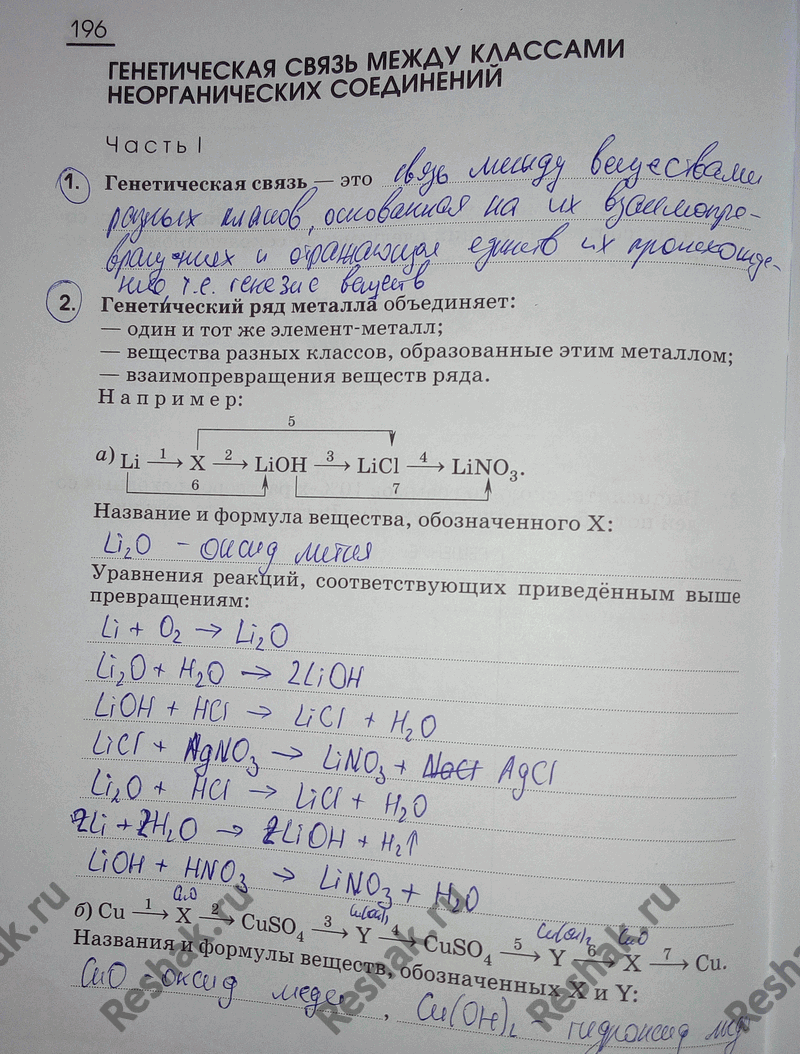 196
ГЕНЕТИЧЕСКАЯ СВЯЗЬ МЕЖДУ КЛАССАМИ
НЕОРГАНИЧЕСКИХ СОЕДИНЕНИЙ
Часть I
1. Генетическая связь — это связь между веществами
разных класов, основанная на их взаимопре-
вращениях и отражающая единств их происхожде-
нию, т.е. генезис веществ
2. Генетический ряд металла объединяет:
— один и тот же элемент-металл;
— вещества разных классов, образованные этим металлом;
— взаимопревращения веществ ряда.
Например:
5
а) Li 1→ X 2→ LiOH 3→ LiCl 4→ LiNO₃.
6 7
Название и формула вещества, обозначенного X:
Li₂O - оксид лития
Уравнения реакций, соответствующих приведённым выше
превращениям:
Li + O₂ → Li₂O
Li₂O + H₂O → 2LiOH
LiOH + HCl → LiCl + H₂O
LiCl + AgNO₃ → LiNO₃ + AgCl
Li₂O + HCl → LiCl + H₂O
2Li + 2H₂O → 2LiOH + H₂↑
LiOH + HNO₃ → LiNO₃ + H₂O
CuO Cu(OH)₂ Cu(OH)₂ CuO
б) Cu 1→ X 2→ CuSO₄ 3→ Y 4→ CuSO₄ 5→ Y 6→ X 7→ Cu.
Названия и формулы веществ, обозначенных X и Y:
CuO - оксид меди, Cu(OH)₂ - гидроксид меди
Reshak.ru
Reshak.ru
Reshak.ru